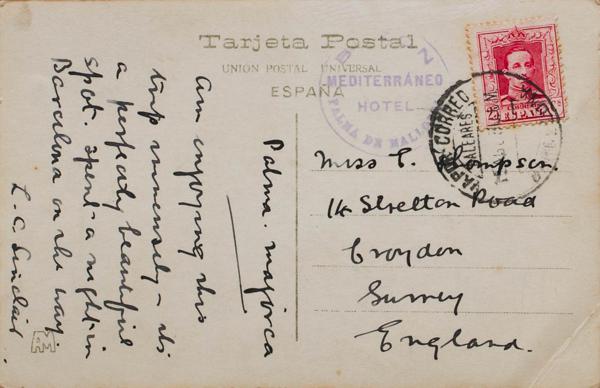 Tarjeta Postal
UNION POSTAL UNIVERSAL
ESPAÑA
MEDITERRÁNEO
HOTEL
PALMA DE MALLORCA
CORREO
BALEARES
25 Cs
ESPAÑA
Palma. Majorca
Am enjoying this
trip immensely - its
a perfectly beautiful
spot. spent a night in
Barcelona on the way.
L. C. Sinclair.
Miss T. Thompson.
14 Stretton Road
Croydon
Surrey
England.